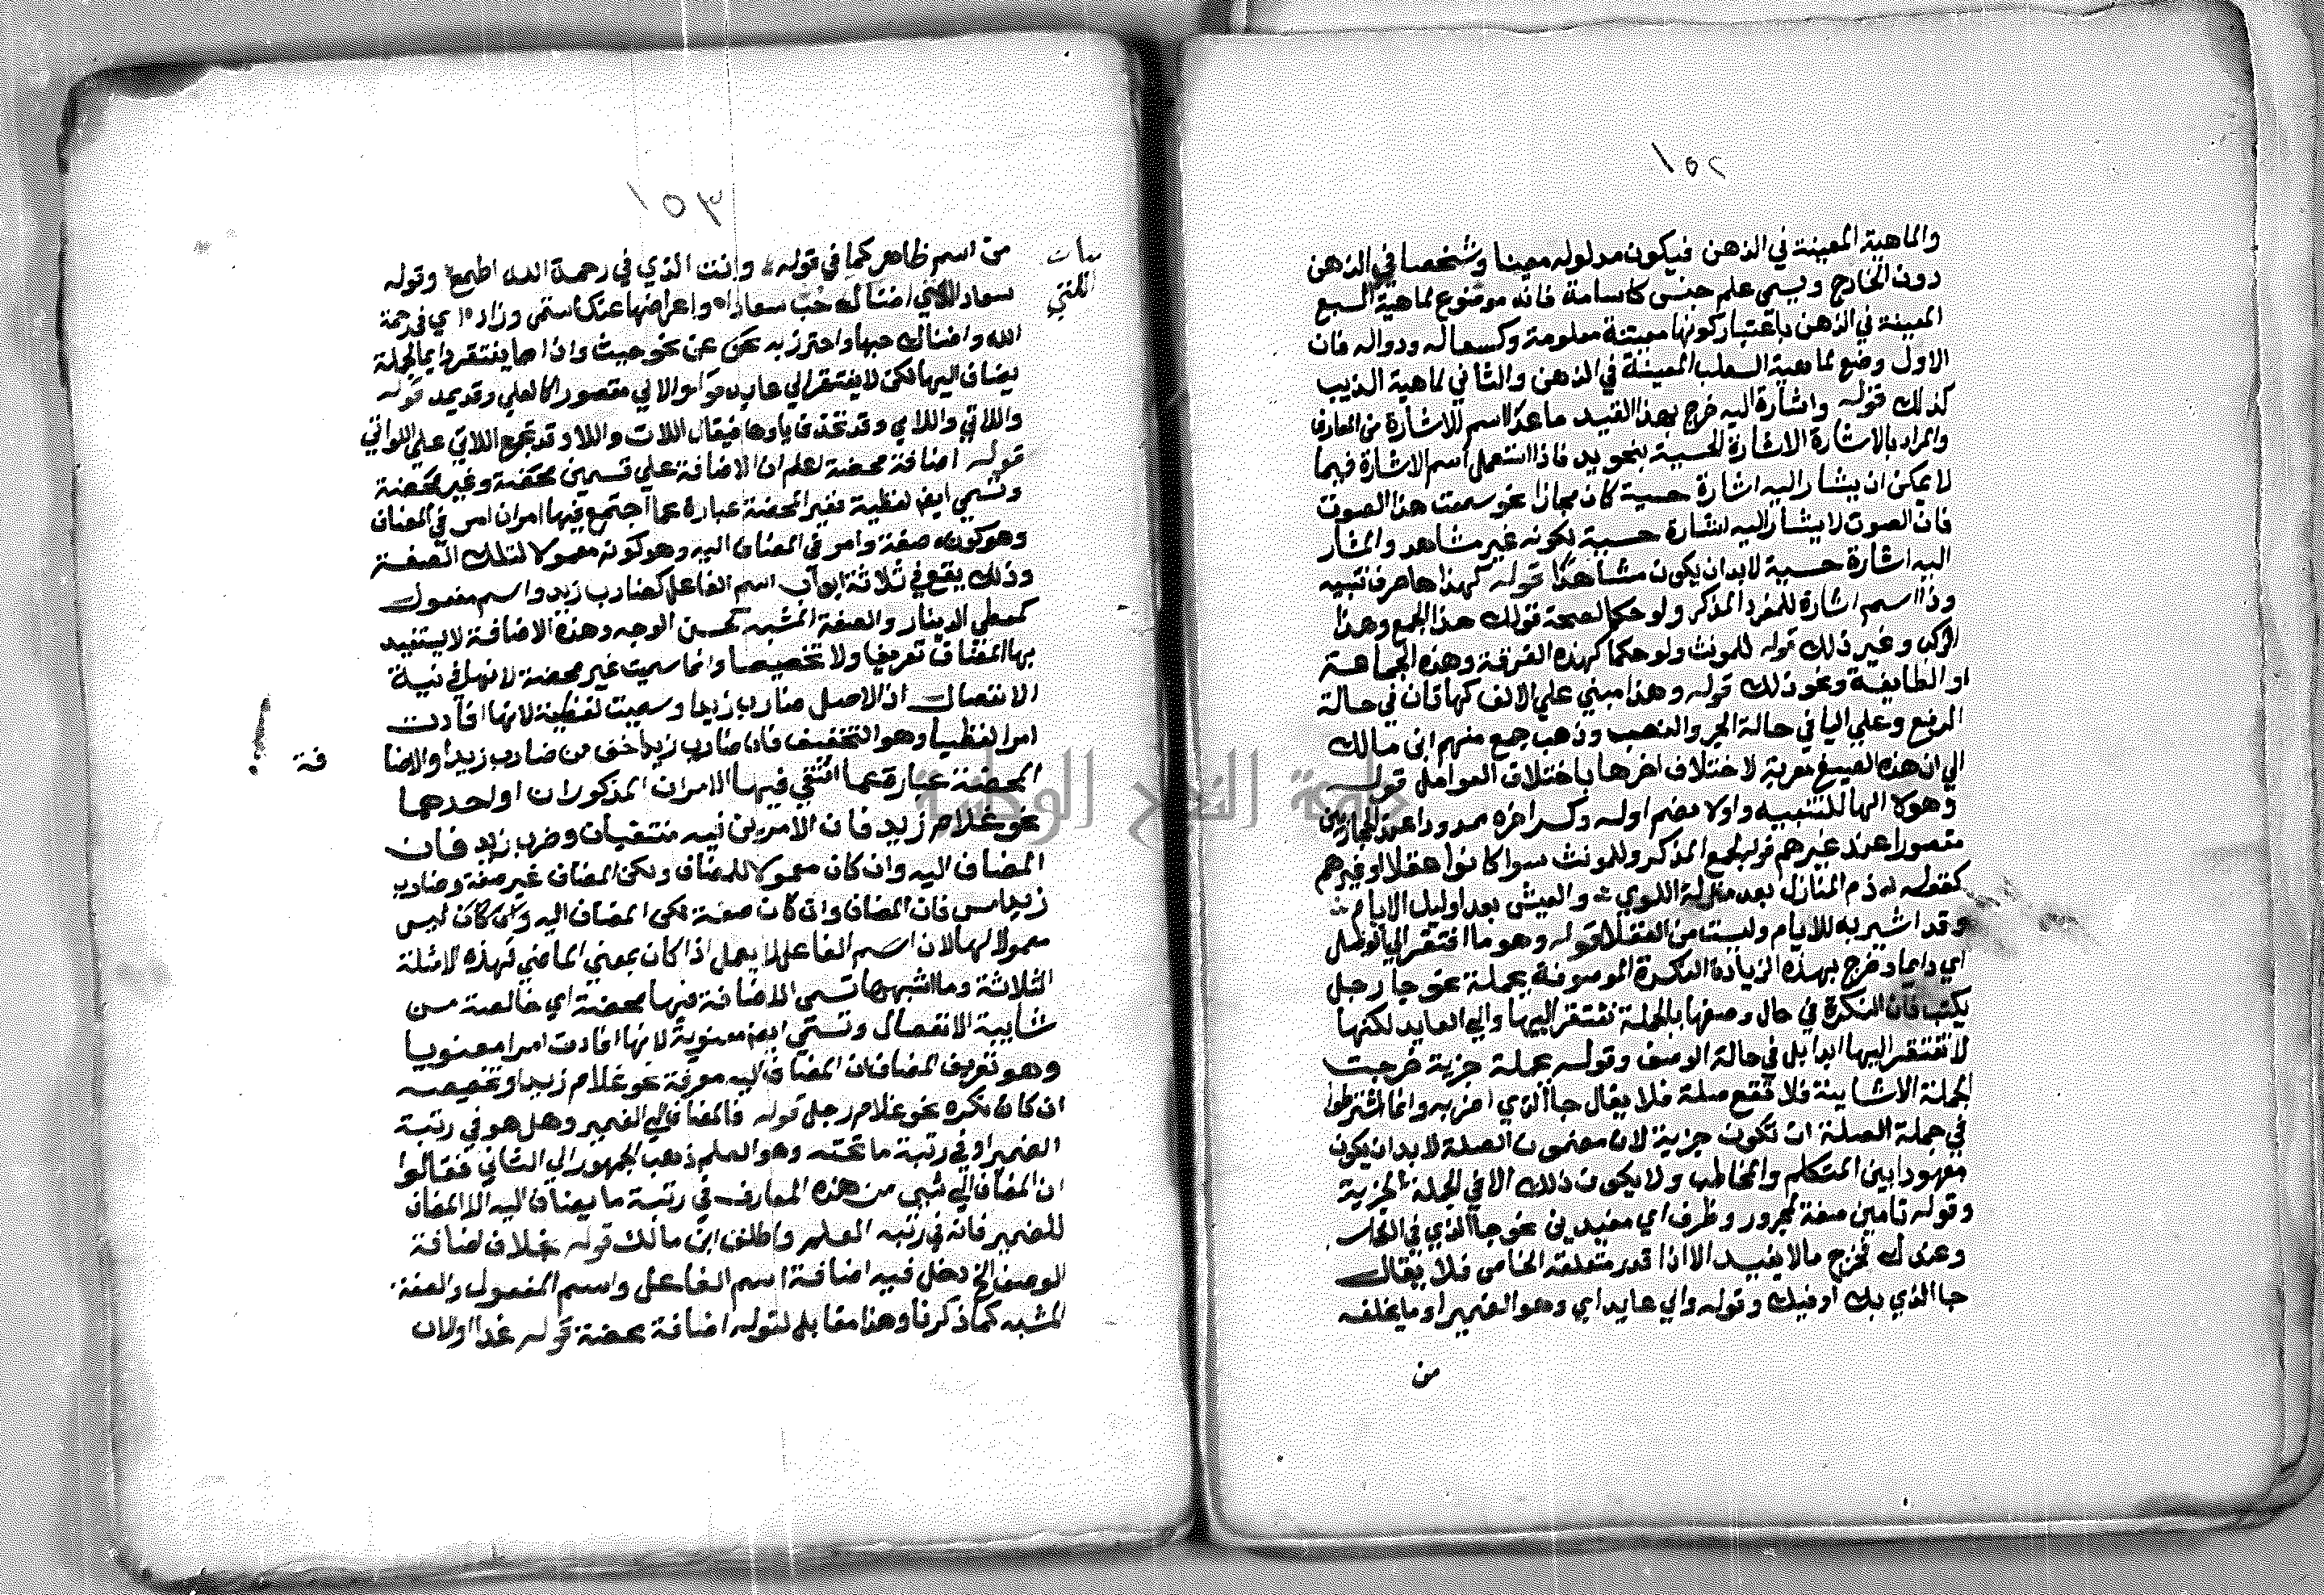 ١٥٢
والماهية المعينة في الذهن فيكون مدلوله معينا وشخصا في الذهن
دون الخارج ويسمى علم جنس كاسامة فانه موضوع لماهية السبع
المعينة في الذهن باعتبار كونها معينة معلومة وكسعاله ودواله فان
الاول وضع لماهية الثعلب المعينة في الذهن والثاني لماهية الذيب
كذلك قوله واشارة اليه خرج بهذا القيد ما عدا اسم الاشارة من المعارف
والمراد بالاشارة الاشارة الحسية بنحو يد فاذا استعمل اسم الاشارة فيما
لا يمكن ان يشار اليه اشارة حسية كان مجازا نحو سمعت هذا الصوت
فان الصوت لا يشار اليه اشارة حسية لكونه غير مشاهد والمشار
اليه اشارة حسية لابد ان يكون مشاهدا قوله كهذا ها حرف تنبيه
وذا اسم اشارة للمفرد المذكر ولو حكما لصحة قولك هذا الجمع وهذا
الركب وغير ذلك قوله للمونث ولو حكما كهذه الفرقة وهذه الجماعة
او الطايفة ونحو ذلك قوله وهذا مبني علي الالف كهاتان في حالة
الرفع وعلي اليا في حالة الجر والنصب وذهب جمع منهم ابن مالك
الي ان هذه الصيغ معربة لاختلاف اخرها باختلاف العوامل قوله
وهولا الها للتنبيه واولا بضم اوله وكسر اخره ممدودا عند الحجازيين
مقصورا عند غيرهم قوله لجمع المذكر وللمونث سوا كانوا عقلا او غيرهم
كقوله ذم المنازل بعد منزلة اللوي والعيش بعد اوليك الايام
وقد اشير به للايام وليست من العقلا قوله وهو ما افتقر الي الوصل
اي دايما وخرج بهذه الزيادة النكرة الموصوفة بجملة نحو جا رجل
يكتب فان النكرة في حال وصفها بالجملة تفتقر اليها والي العايد لكنها
لا تفتقر اليها ابدا بل في حالة الوصف وقوله بجملة خبرية خرجت
الجملة الانشايية فلا تقع صلة فلا يقال جا الذي اضربه وانما اشترطوا
في جملة الصلة ان تكون خبرية لان مضمون الصلة لابد ان يكون
معهودا بين المتكلم والمخاطب ولا يكون ذلك الا في الجملة الخبرية
وقوله تامين صفة لمجرور وظرف اي مفيدين نحو جا الذي في الدار
وعندك فخرج مالا يفيد الا اذا قدر متعلقه الخاص فلا يقال
جا الذي بك او فيك وقوله والي عايد اي وهو الضمير او ما يخلفه
من
١٥٣
من اسم ظاهر كما في قوله وانت الذي في رحمة الله اطمع وقوله
سعاد التي اضناك حب سعادا واعراضها عنك استمر وزادا اي في رحمة
الله واضناك حبها واحترز به عن نحو حيث واذا مما يفتقر دايما لجملة
يضاف اليها لكن لا يفتقر الي عايد قوله والالي مقصورا كالعلي وقد يمد قوله
واللاتي واللاي وقد تحذف ياوها فيقال اللات واللا وقد تجمع اللاتي علي اللواتي
قوله اضافة محضة اعلم ان الاضافة علي قسمين محضة وغير محضة
وتسمي ايض لفظية فغير المحضة عبارة عما اجتمع فيها امران امر في المضاف
وهو كونه صفة وامر في المضاف اليه وهو كونه معمولا لتلك الصفة
وذلك يقع في ثلاثة ابواب اسم الفاعل كضارب زيد واسم مفعول
كمعطي الدينار والصفة المشبه كحسن الوجه وهذه الاضافة لا يستفيد
بها المضاف تعريفا ولا تخصيصا وانما سميت غير محضة لانها في نية
الانفصال اذ الاصل ضارب زيدا وسميت لفظية لانها افادت
امرا لفظيا وهو التخفيف فان ضارب زيد اخف من ضارب زيدا والاضا
فة
المحضة عبارة عما انتفي فيها الامران المذكوران او احدهما
نحو غلام زيد فان الامرين فيه منتفيان وضرب زيد فان
المضاف اليه وان كان معمولا للمضاف ولكن المضاف غير صفة وضارب
زيد امس فان المضاف وان كان صفة لكن المضاف اليه وان كان ليس
معمولا لها لان اسم الفاعل لا يعمل اذا كان بمعني الماضي فهذه الامثلة
الثلاثة وما اشبهها تسمى الاضافة فيها محضة اي خالصة من
شايبة الانفصال وتسمي ايض معنوية لانها افادت امرا معنويا
وهو تعريف المضاف ان المضاف اليه معرفة نحو غلام زيد او تخصيصه
ان كان نكره نحو غلام رجل قوله فالمضاف الي الضمير وهل هو في رتبة
الضمير او في رتبة ما تحته وهو العلم ذهب الجمهور الي الثاني فقالوا
ان المضاف الي شي من هذه المعارف في رتبة ما يضاف اليه الا المضاف
للضمير فانه في رتبه العلم واطلق ابن مالك قوله بخلاف اضافة
الوصف الخ دخل فيه اضافة اسم الفاعل واسم المفعول والصفة
المشبه كما ذكرنا وهذا مقابل لقوله اضافة محضة قوله غدا اولات